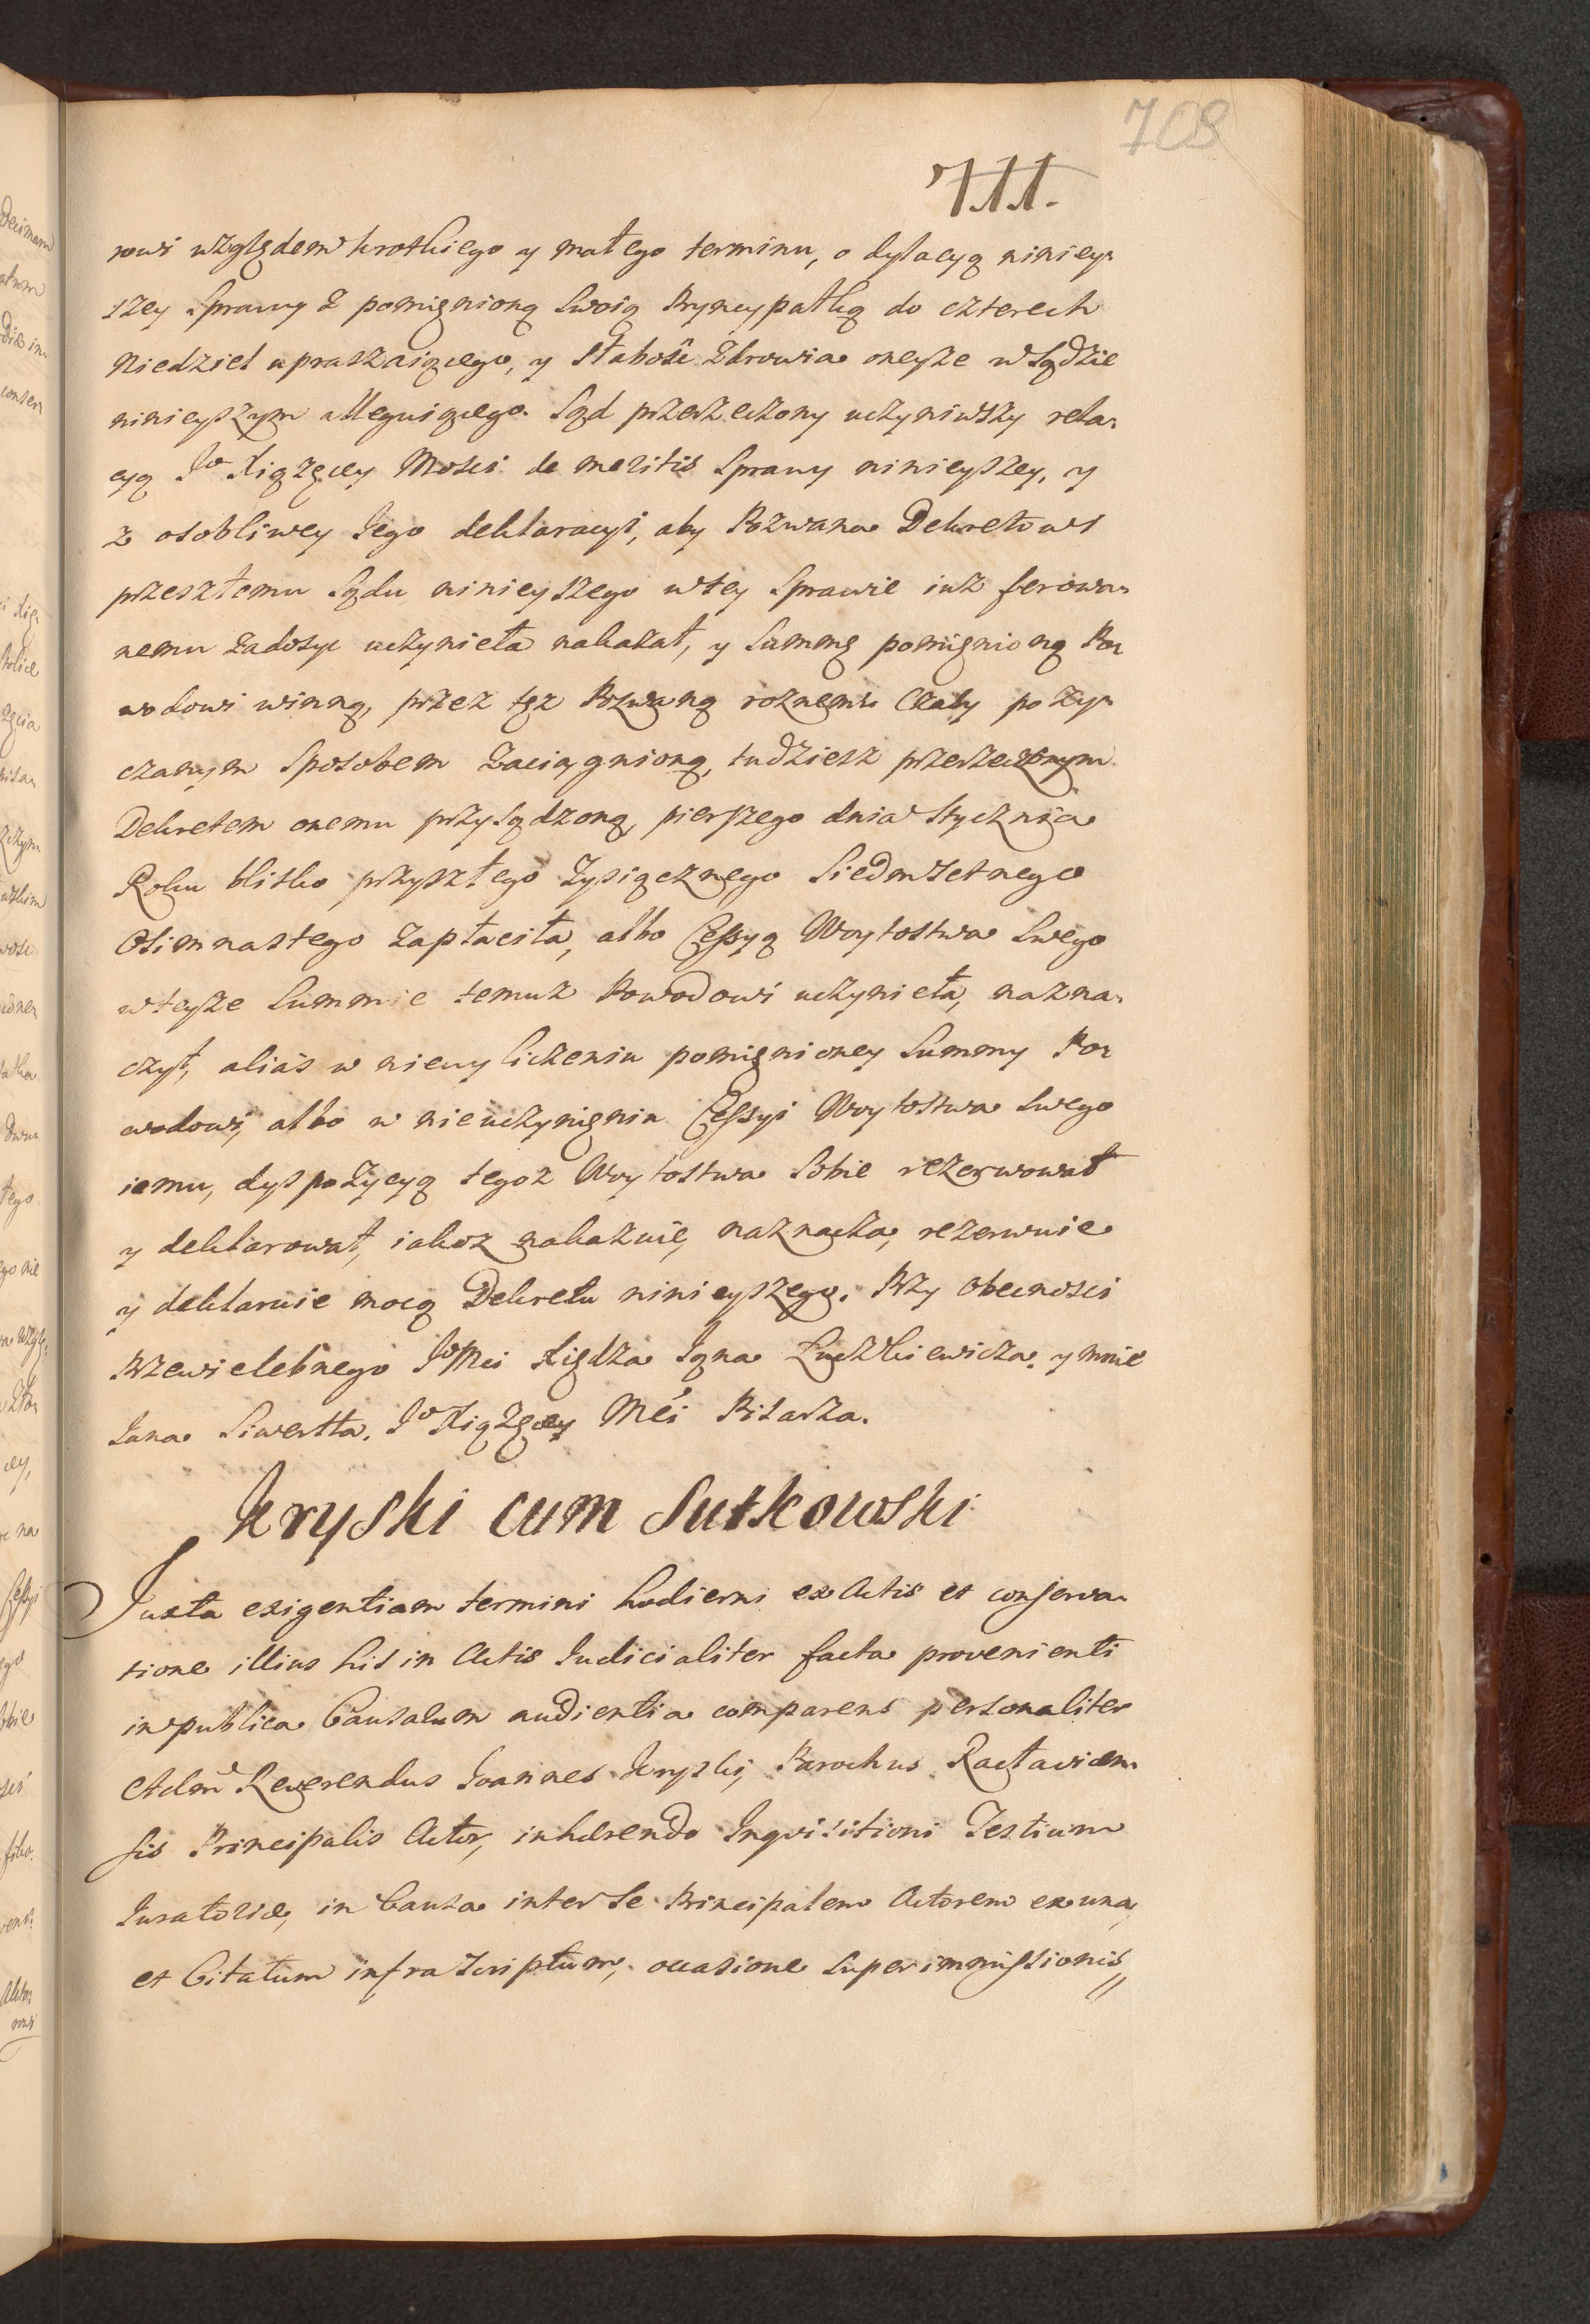 708
711.
rowi względem krotkiego y małego terminu, o dylacyą niniey-
szey Sprawy z pomięnioną Swoią Pryncypałką do czterech
Niedziel upraszaiącego, y słabość Zdrowia oneyże w Sądzie
ninieyszym alleguiącego. Sąd przerzeczony uczyniwszy rela-
cyą Jo Xiążęcey Mosci de meritis Sprawy ninieyszey, y
z osobliwey Jego deklaracyi, aby Pozwana Dekretowi
przeszłemu Sądu ninieyszego w tey Sprawie iuż ferowa-
nemu zadosyć uczynieła nakazał, y Summę pomięnioną Po-
wodowi winną, przez tęż Pozwaną roznemi Czasy poży-
czanym Sposobem Zaciągnioną, tudziesz przerzeczonym
Dekretem onemu przysądzoną, pierszego dnia Stycznia
Roku blisko przyszłego Tysiącznego Siedmsetnego
Osimnastego zapłaciła, albo Cessyą Woytostwa Swego
w teyże Summie temuż Powodowi uczynieła, nazna-
czył, alias w niewyliczeniu pomięnioney Summy Po-
wodowi, albo w nieuczynięniu Cessyi Woytostwa Swego
iemu, dyspozycyą tegoż Woytostwa Sobie rezerwował
y deklarował, iakoż nakazuie, naznacza, rezerwuie
y deklaruie mocą Dekretu ninieyszego. Przy obecnosci
Przewielebnego JoMci Xiędza Jana Łuczkiewicza, y mnie
Jana Siwertta, Jo Xiążęcey Mci Pisarza.
Kryski cum Sutkowski
Juxta exigentiam termini hodierni ex Actis et conserva-
tione illius his in Actis Judicialiter facta provenienti
in publica Causarum audientia comparens personaliter
Adm Reverendus Joannes Kryski, Parochus Racławicen-
sis Principalis Actor, inhærendo Inqvisitioni Testium
Juratoriæ, in Causa inter Se Principalem Actorem ex una,
et Citatum infra Scriptum, occasione Superimmissionis